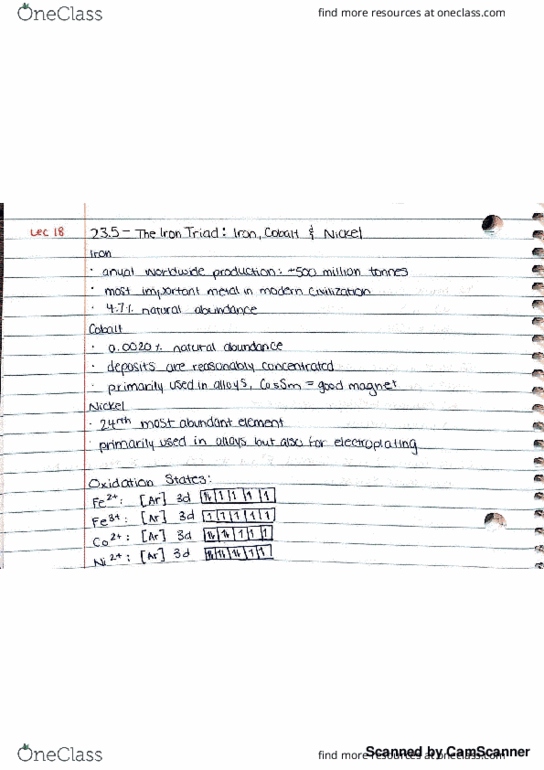 OneClass
find more resources at oneclass.com
Lec 18
23.5 - The Iron Triad: Iron, Cobalt & Nickel
Iron
· anual worldwide production: ~500 million tonnes
· most important metal in modern civilization
· 4.7% natural abundance
Cobalt
· 0.0020% natural abundance
· deposits are reasonably concentrated
- primarily used in alloys, Co5Sm = good magnet
Nickel
· 24rth most abundant element
· primarily used in alloys but also for electroplating
Oxidation States:
Fe²⁺: [Ar] 3d ⥮ 1 1 1 1
Fe³⁺: [Ar] 3d 1 1 1 1 1
Co²⁺: [Ar] 3d ⥮ ⥮ 1 1 1
Ni²⁺: [Ar] 3d ⥮ ⥮ ⥮ 1 1
OneClass
find more resources at oneclass.com
Scanned by CamScanner